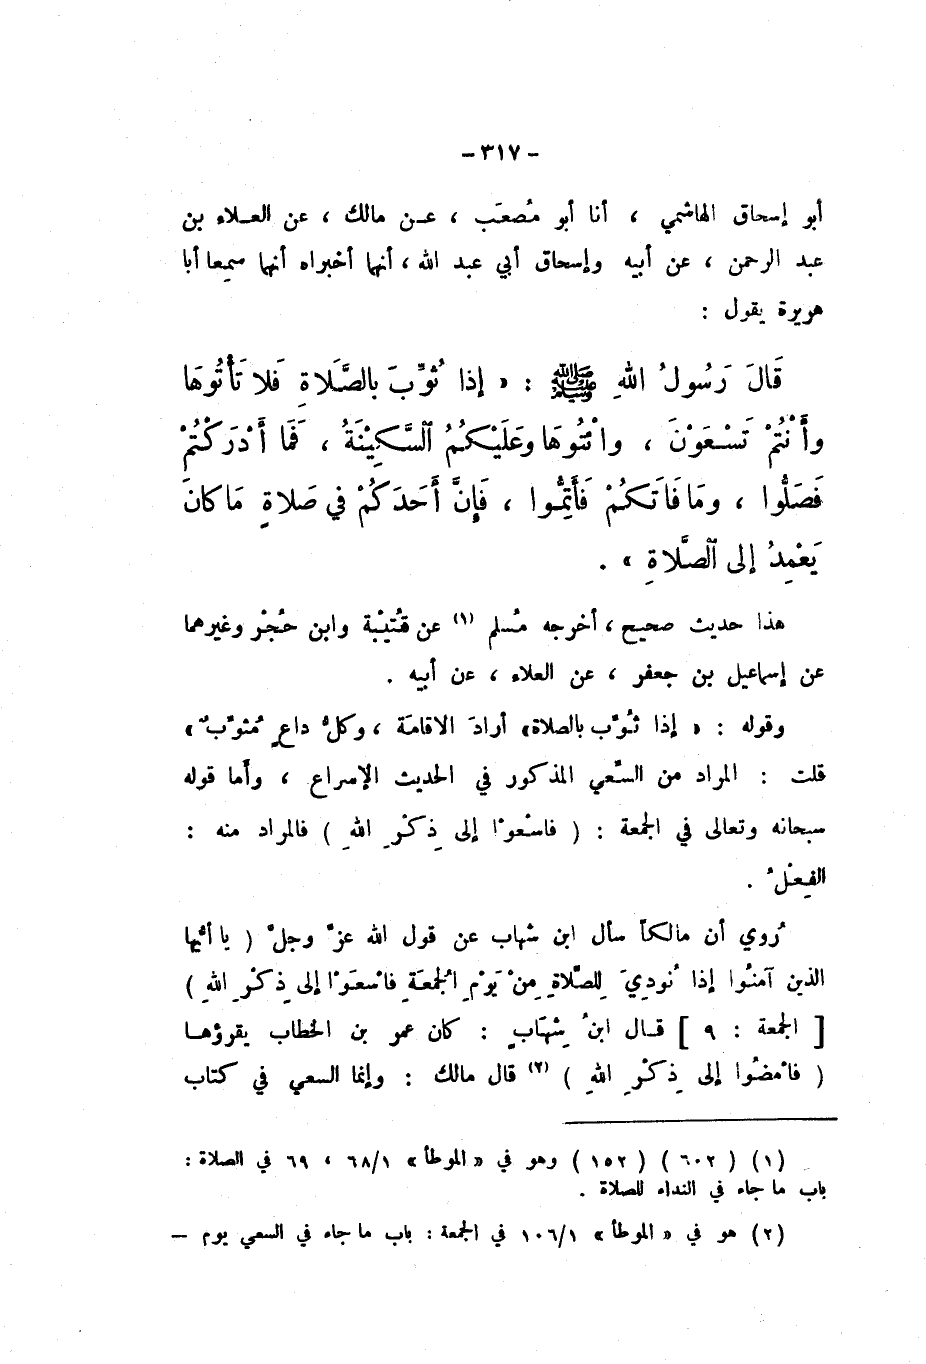 - ٣١٧ -
أبو إسحاق الهاشمي ، أنا أبو مُصعَب ، عـن مالك ، عن العـلاء بن
عبد الرحمن ، عن أبيه وإسحاق أبي عبد الله ، أنهما أخبراه أنهما سمِعا أبا
هريرة يقول :
قَالَ رَسُولُ اللهِ ﷺ : « إذا ثُوِّبَ بالصَّلَاةِ فَلا تَأْتُوهَا
وأَنْتُمْ تَسْعَوْنَ ، وائْتُوهَا وعَلَيْكُمُ ٱلسَّكِيْنَةُ ، فَمَا أَدْرَكْتُمْ
فَصَلُّوا ، ومَا فَاتَكُمْ فَأَتِمُّوا ، فَإنَّ أَحَدَكُمْ في صَلاةٍ مَا كانَ
يَعْمِدُ إلى ٱلصَّلاةِ » .
هذا حديث صحيح ، أخرجه مُسلم (١) عن قُتيْبة وابن حُجْر وغيرهما
عن إسماعيل بن جعفر ، عن العلاء ، عن أبيه .
وقوله : « إذا ثُوِّب بالصلاة» أرادَ الاقامَة ، وكلُّ داعٍ مُثوِّبٌ »
قلت : المراد من السَّعي المذكور في الحديث الإسراع ، وأما قوله
سبحانه وتعالى في الجمعة : ( فاسْعوْا إلى ذِكْرِ اللهِ ) فالمراد منه :
الفِعْلُ .
رُوي أن مالكاً سأل ابن شهاب عن قول الله عزَّ وجلَّ ( يا أيُّها
الذين آمنُوا إذا نُودِيَ لِلصَّلاةِ مِنْ يَوْمِ الجُمعَةِ فاسْعَوْا إلى ذِكْرِ اللهِ )
[ الجمعة : ٩ ] قـال ابنُ شِهَابٍ : كان عمر بن الخطاب يقرؤهـا
( فامْضُوا إلى ذِكْرِ اللهِ ) (٢) قال مالك : وإنما السعي في كتاب
(١) ( ٦٠٢ ) ( ١٥٢ ) وهو في « الموطأ » ٦٨/١ ، ٦٩ في الصلاة :
باب ما جاء في النداء للصلاة .
(٢) هو في « الموطأ » ١٠٦/١ في الجمعة : باب ما جاء في السعي يوم —